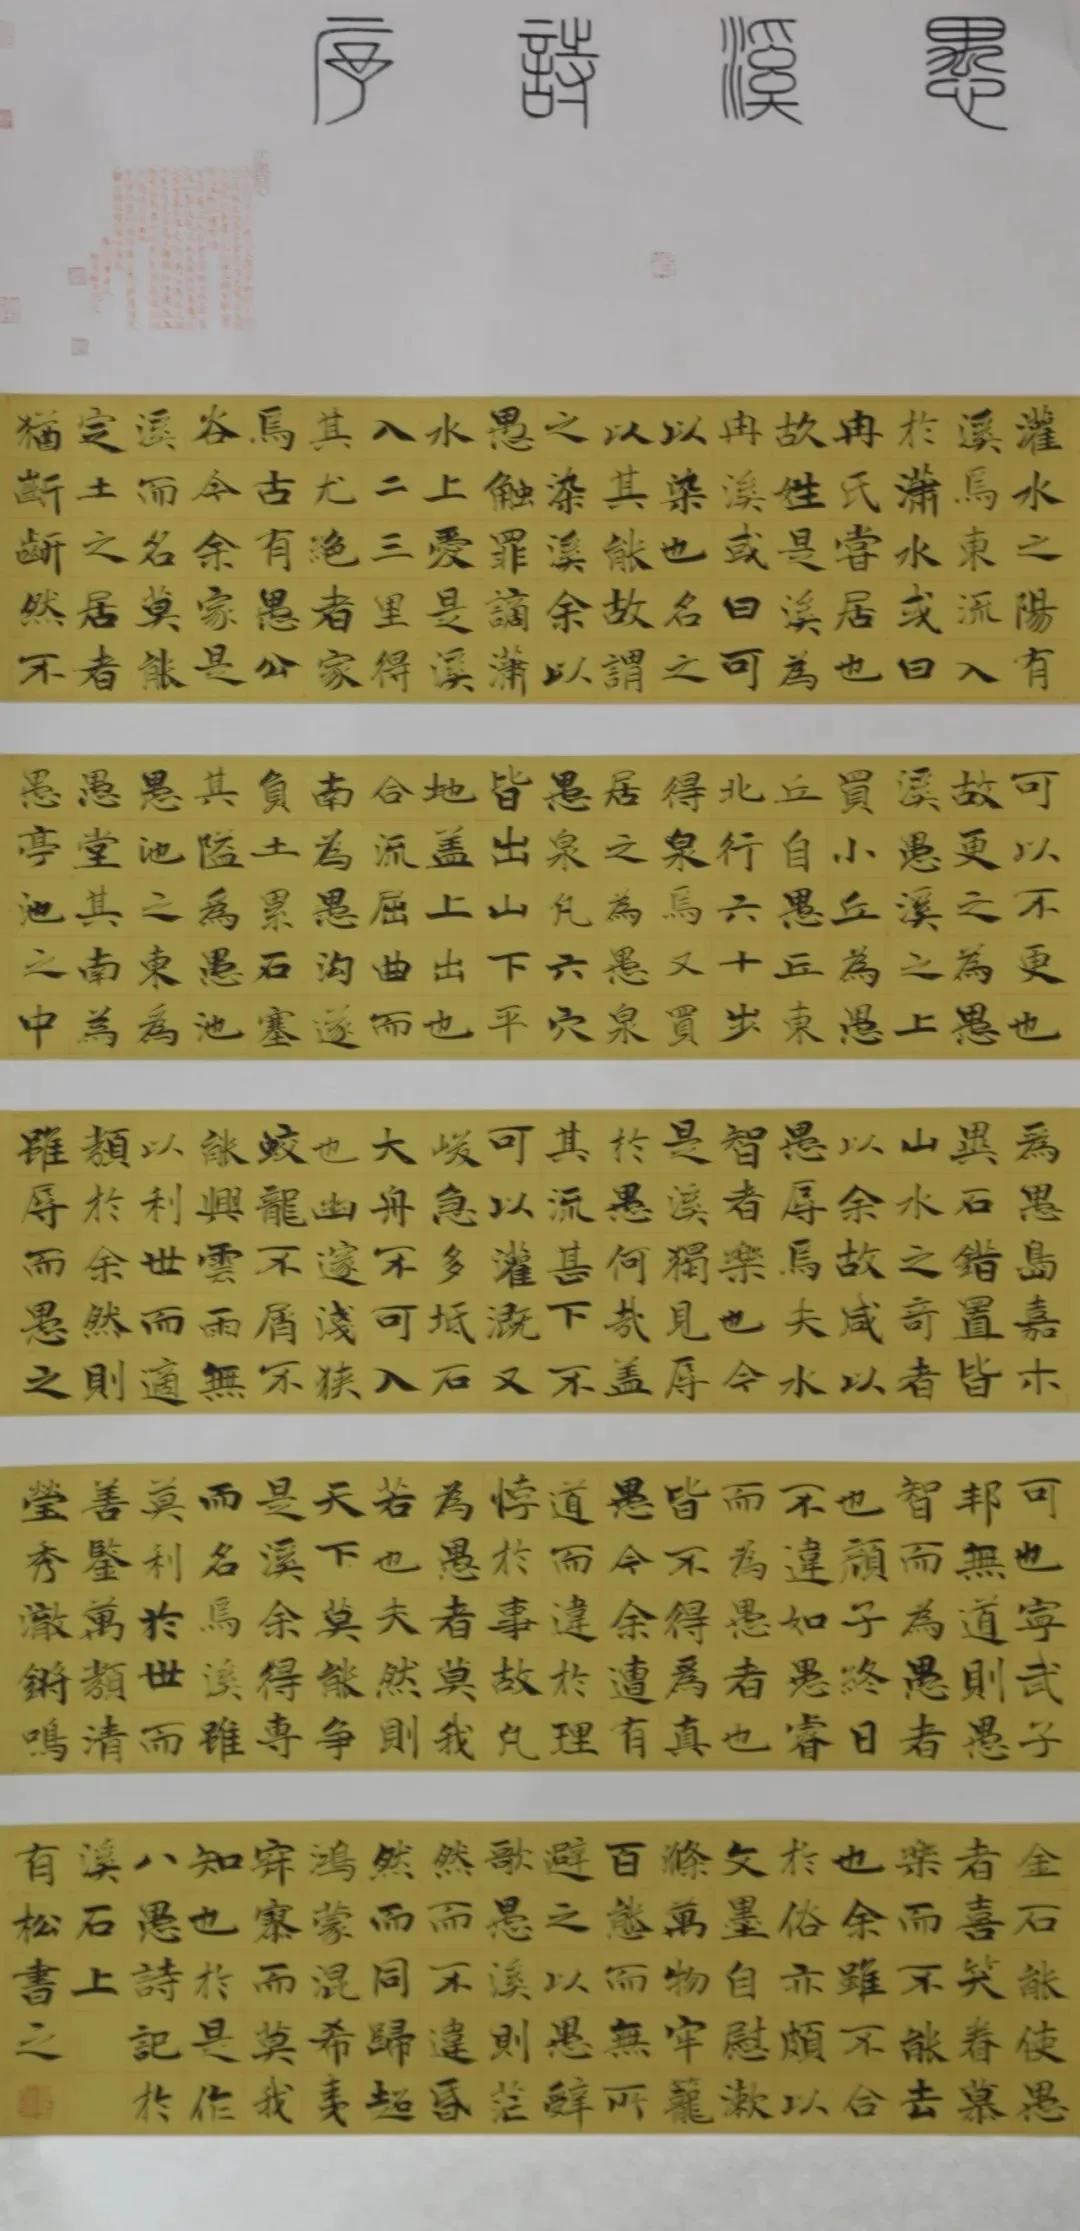 愚溪詩序
灌水之陽有
溪焉東流入
於瀟水或曰
冉氏嘗居也
故姓是溪為
冉溪或曰可
以染也名之
以其能故謂
之染溪余以
愚触罪謫瀟
水上愛是溪
入二三里得
其尤絶者家
焉古有愚公
谷今余家是
溪而名莫能
定土之居者
猶斷齗然不
可以不更也
故更之為愚
溪愚溪之上
買小丘為愚
丘自愚丘東
北行六十步
得泉焉又買
居之為愚泉
愚泉凡六穴
皆出山下平
地盖上出也
合流屈曲而
南為愚沟遂
負土累石塞
其隘為愚池
愚池之東為
愚堂其南為
愚亭池之中
為愚島嘉木
異石錯置皆
山水之奇者
以余故咸以
愚辱焉夫水
智者樂也今
是溪獨見辱
於愚何哉盖
其流甚下不
可以灌溉又
峻急多坻石
大舟不可入
也幽邃淺狹
蛟龍不屑不
能興雲雨無
以利世而適
類於余然則
雖辱而愚之
可也寧武子
邦無道則愚
智而為愚者
也顔子終日
不違如愚睿
而為愚者也
皆不得為真
愚今余遭有
道而違於理
悖於事故凡
為愚者莫我
若也夫然則
天下莫能争
是溪余得専
而名焉溪雖
莫利於世而
善鑒萬類清
瑩秀澈鏘鳴
金石能使愚
者喜笑眷慕
樂而不能去
也余雖不合
於俗亦頗以
文墨自慰漱
滌萬物牢籠
百態而無所
避之以愚辭
歌愚溪則茫
然而不違昏
然而同歸超
鴻蒙混希夷
寂寥而莫我
知也於是作
八愚詩記於
溪石上
有松書之